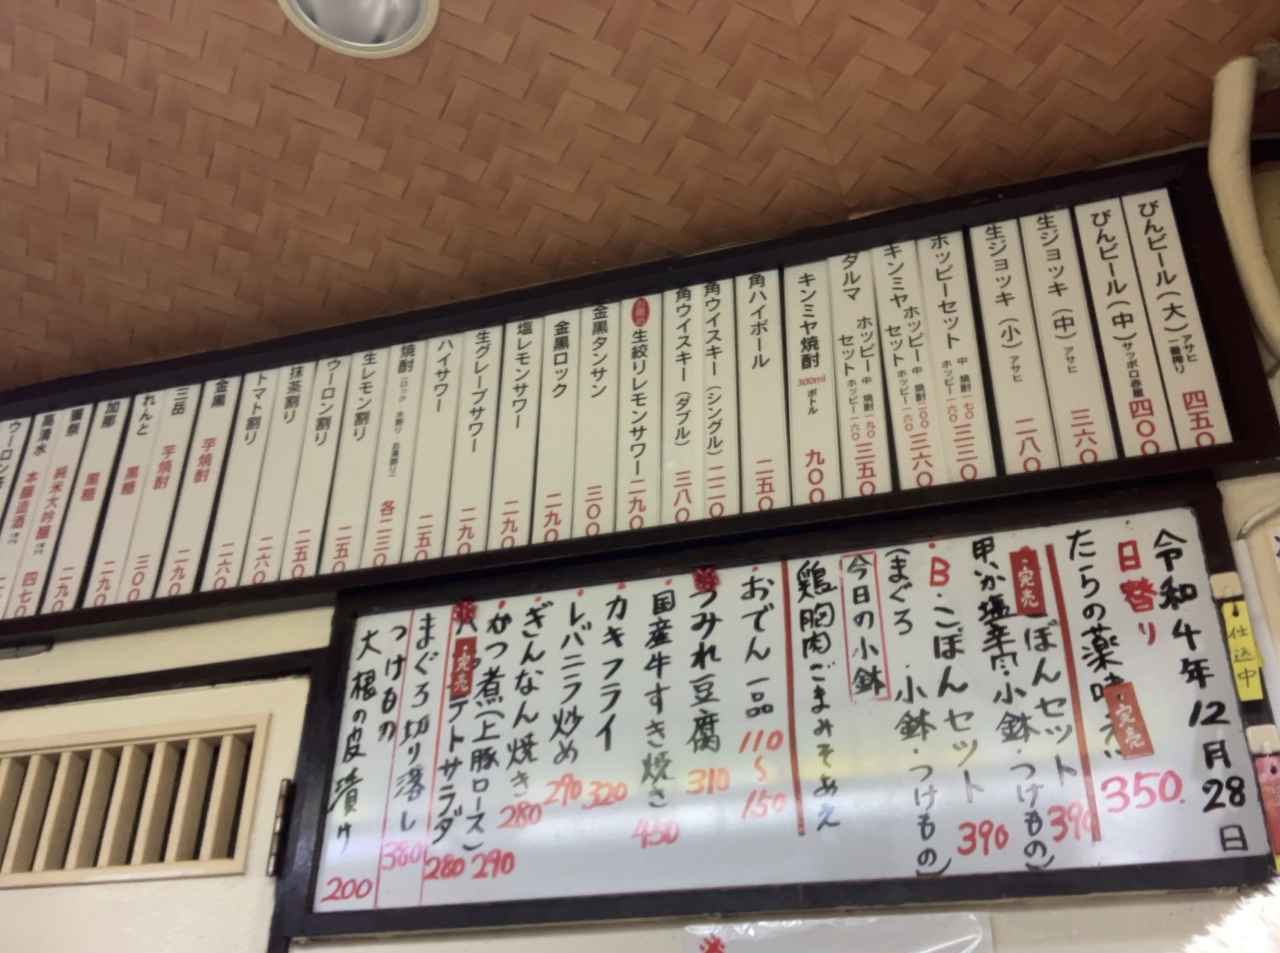 びんビール（大）アサヒ 一番搾り 四五〇
びんビール（中）サッポロ赤星 四〇〇
生ジョッキ（中）アサヒ 三六〇
生ジョッキ（小）アサヒ 二八〇
ホッピーセット 中 焼酎一七〇 ホッピー一六〇 三三〇
キンミヤ ホッピーセット 中 焼酎二〇〇 ホッピー一六〇 三六〇
ダルマ ホッピーセット 中 焼酎一九〇 ホッピー一六〇 三五〇
キンミヤ焼酎 300ml ボトル 九〇〇
角ハイボール 二五〇
角ウイスキー（シングル）二二〇
角ウイスキー（ダブル）三八〇
生絞りレモンサワー 二九〇
金黒タンサン 三〇〇
金黒ロック 二九〇
塩レモンサワー 二九〇
生グレープサワー 二九〇
ハイサワー 二五〇
焼酎（ロック 水割り・お湯割り）各二三〇
生レモン割り 二五〇
ウーロン割り 二五〇
抹茶割り 二五〇
トマト割り 二六〇
金黒 芋焼酎 二六〇
三岳 芋焼酎 二九〇
れんと 黒糖 三〇〇
加那 黒糖 二九〇
獺祭 純米大吟醸 二九〇
高清水 本醸造酒 四七〇
令和4年12月28日
日替り
たらの薬味 完売 350
完売 ぼんセット 390
甲いか塩辛・小鉢・つけもの）
B・こぼんセット 390
（まぐろ・小鉢・つけもの）
今日の小鉢
鶏胸肉ごまみそあえ
・おでん一品 110〜150
つみれ豆腐 310
・国産牛すき焼き 450
・カキフライ 320
・レバニラ炒め 290
・ぎんなん焼き 280
・かつ煮（上豚ロース）290
完売 テトサラダ 280
まぐろ切り落し 380
つけもの
大根の皮漬け 200
仕込中